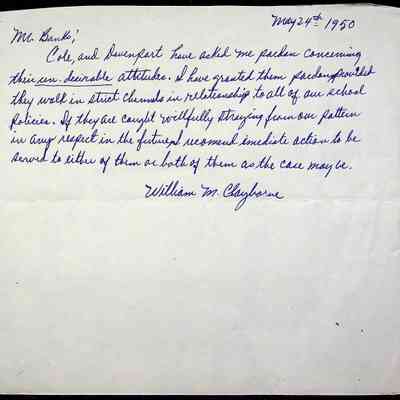 May 24th 1950
Mr. Banks;
Cole, and Davenport have asked me pardon concerning
their un-desirable attitudes. I have granted them pardon, provided
they walk in strict channels in relationship to all of our school
policies. If they are caught willfully straying from our pattern
in any respect in the future, I recomend imediate action to be
served to either of them or both of them as the case may be.
William M. Clayborne